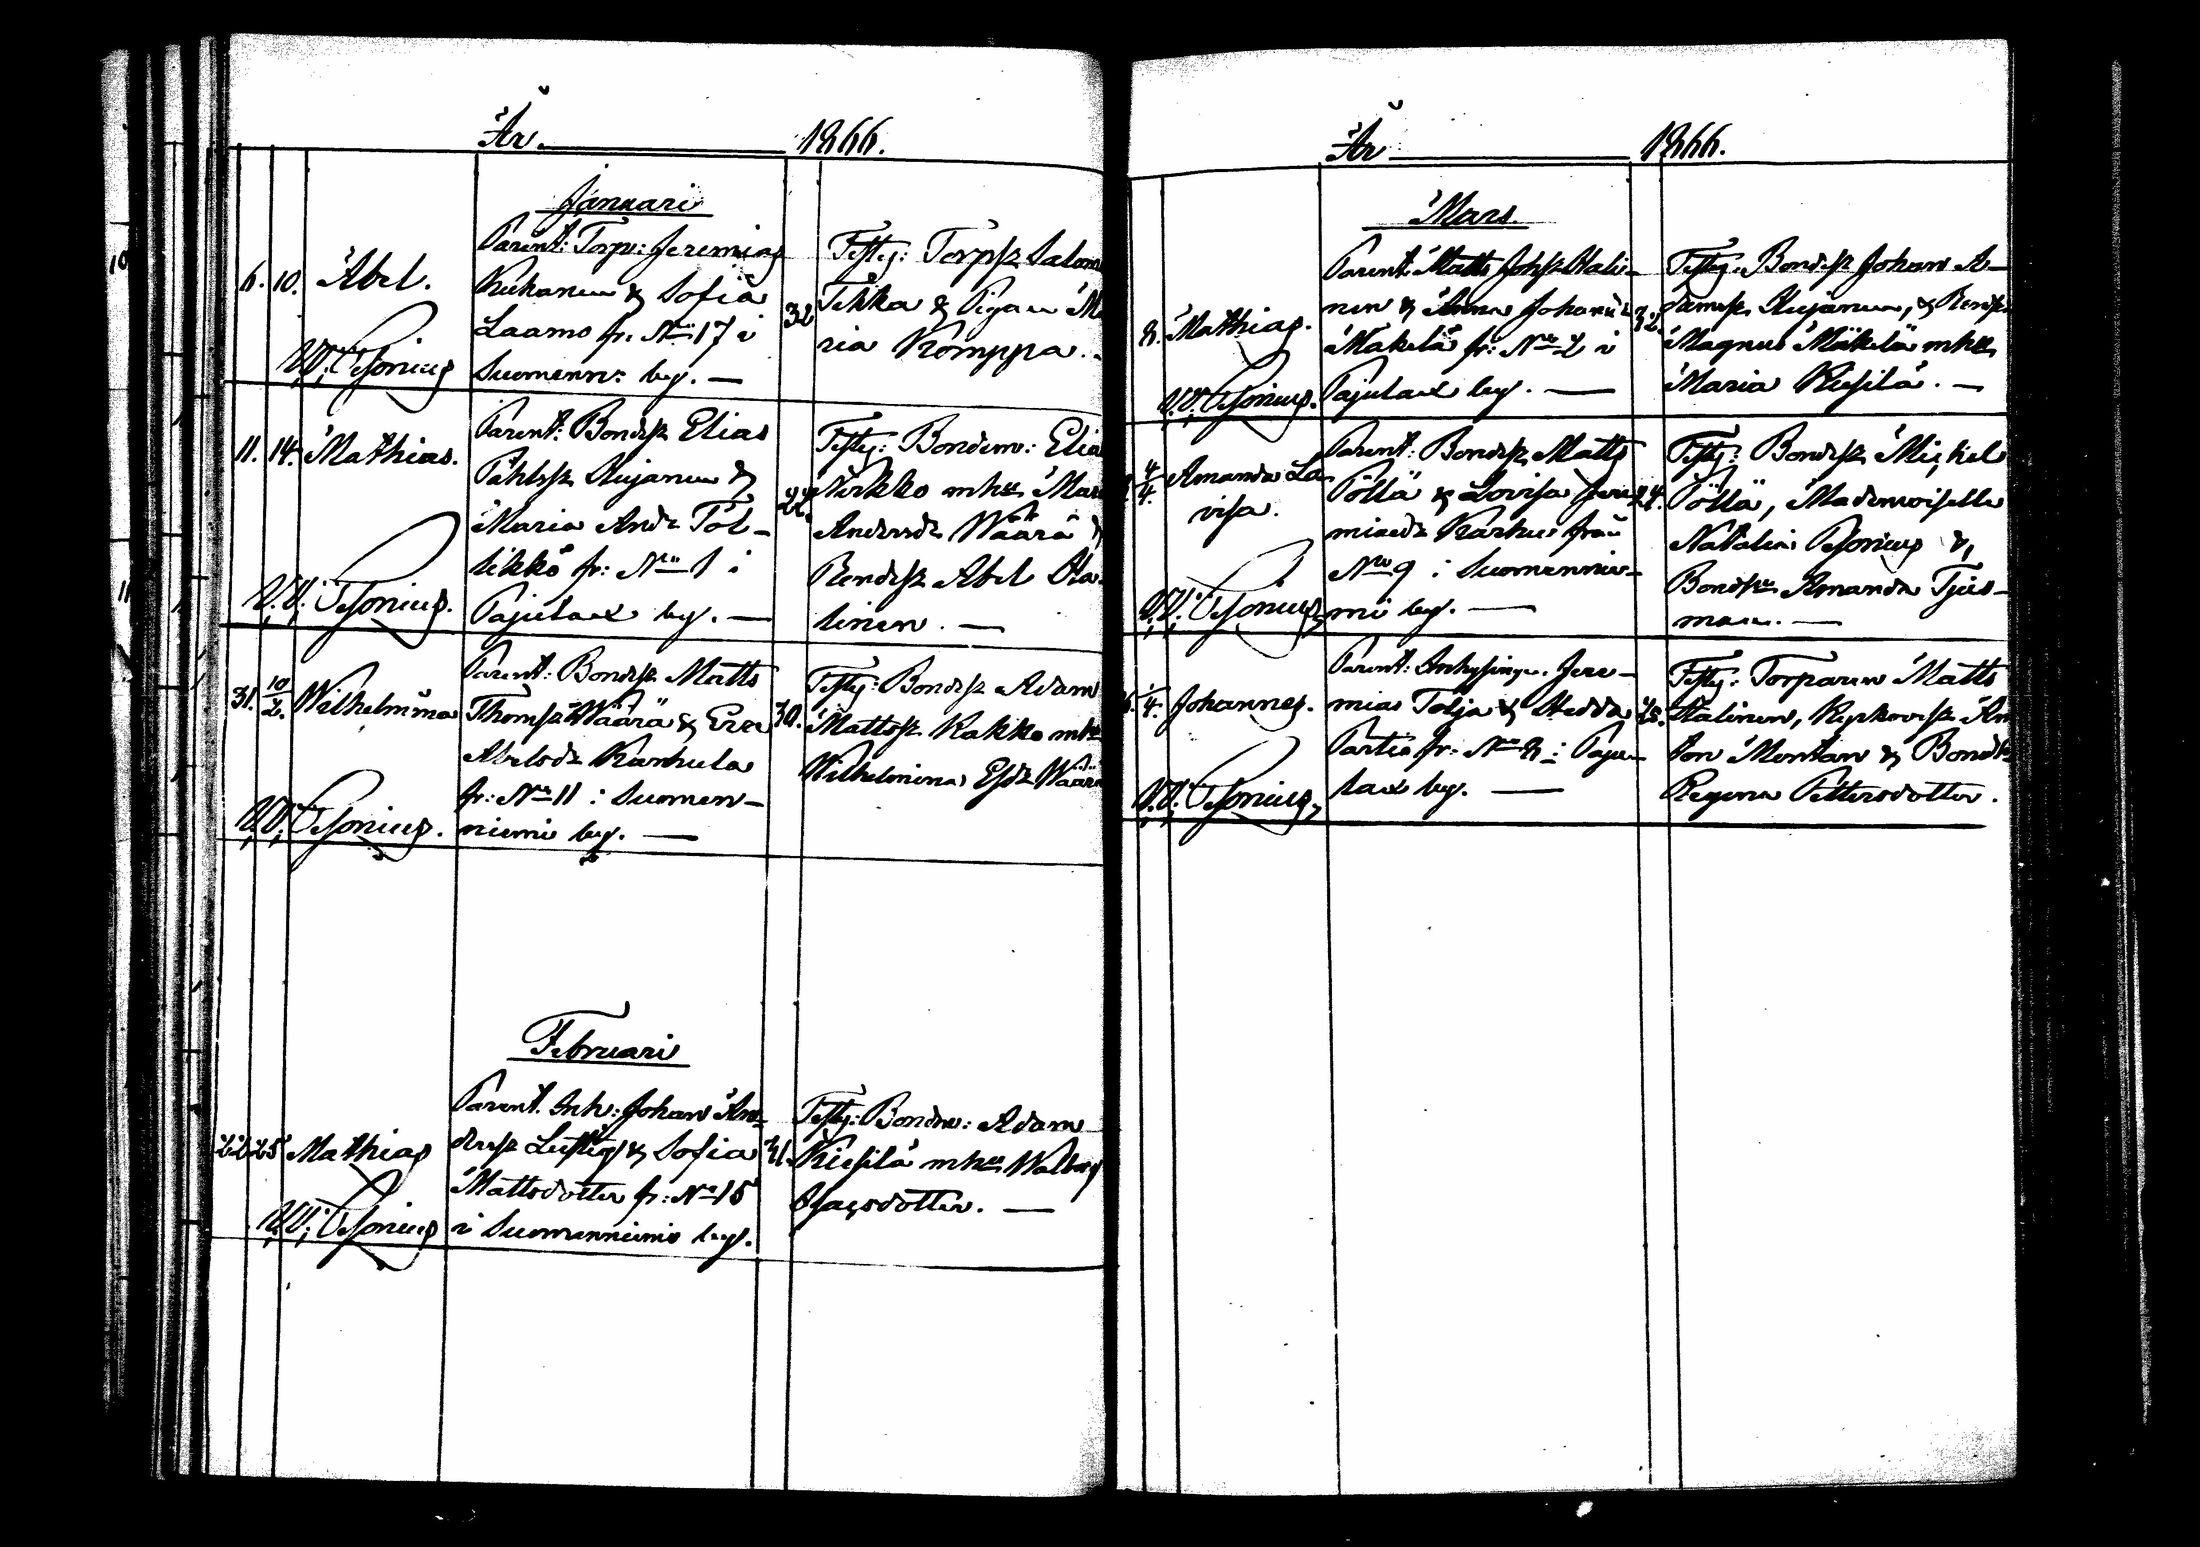 År. 1866.
Januari
6. 10. Abel.
Parent: Torp: Jeremias
&  Sofia
Laamo fr. No 17 i
Suomenn: by. —
32
Testes: Torpsr Salom
Tikka & Pigan Ma
ria Komppa.
11. 14. Mathias.
Parent: Bondsr Elias
Påhlsr Kujanen &
Maria Andr Töl-
likkö fr: No 1 i
Pajulax by. —
22.
Testes: Bonden: Elia
Wirkko mhu Mar
Andersdr Wäärä &
Bondsr Abel Sta-
linen. —
31. 10/2. Wilhelmina
Parent: Bondsr Matts
Thomsr Wäärä & Eva
Abelsdr Kanhula
fr: No 11 i Suomen-
niemi by. —
30.
Testes: Bondsr Adam
Mattssr Kakko mhu
Wilhelmina Esdr Wäärä
Februari
22 25 Mathias
Parent. Inh: Johan An-
derssr Lustig & Sofia
Mattsdotter fr: No 15
i Suomenniemi by.
31.
Testes: Bonden: Adam
Kiesilä mhu Walborg
Isacsdotter. —
År 1866.
Mars.
8. Mathias.
Parent: Matts Johsr Stali-
nen & Anna Johansdr
Mäkelä fr: No 2 i
Pajulax by. —
32.
Testes: Bondsr Johan A-
damsr Kujanen, & Bondsr
Magnus Mäkelä mhu
Maria Kiesilä. —
4/4. Amanda Lo
visa.
Parent: Bondsr Matts
Pöllä & Lovisa Jere
miaedr Karhu från
No 9 i Suomennie-
mi by. —
24.
Testes: Bondsr Michel
Pöllä, Mademoiselle
Natalia Pesonius &
Bondsr Amanda Tjus-
man. —
Johannes.
Parent: Inhysingen Jere-
mias Tolja & Hedda
Partio fr: No 8 i Paju-
lax by. —
25.
Testes: Torparen Matts
Stalinen, Kyrkovsr An
ton Montan & Bondr
Regina Pettersdotter.